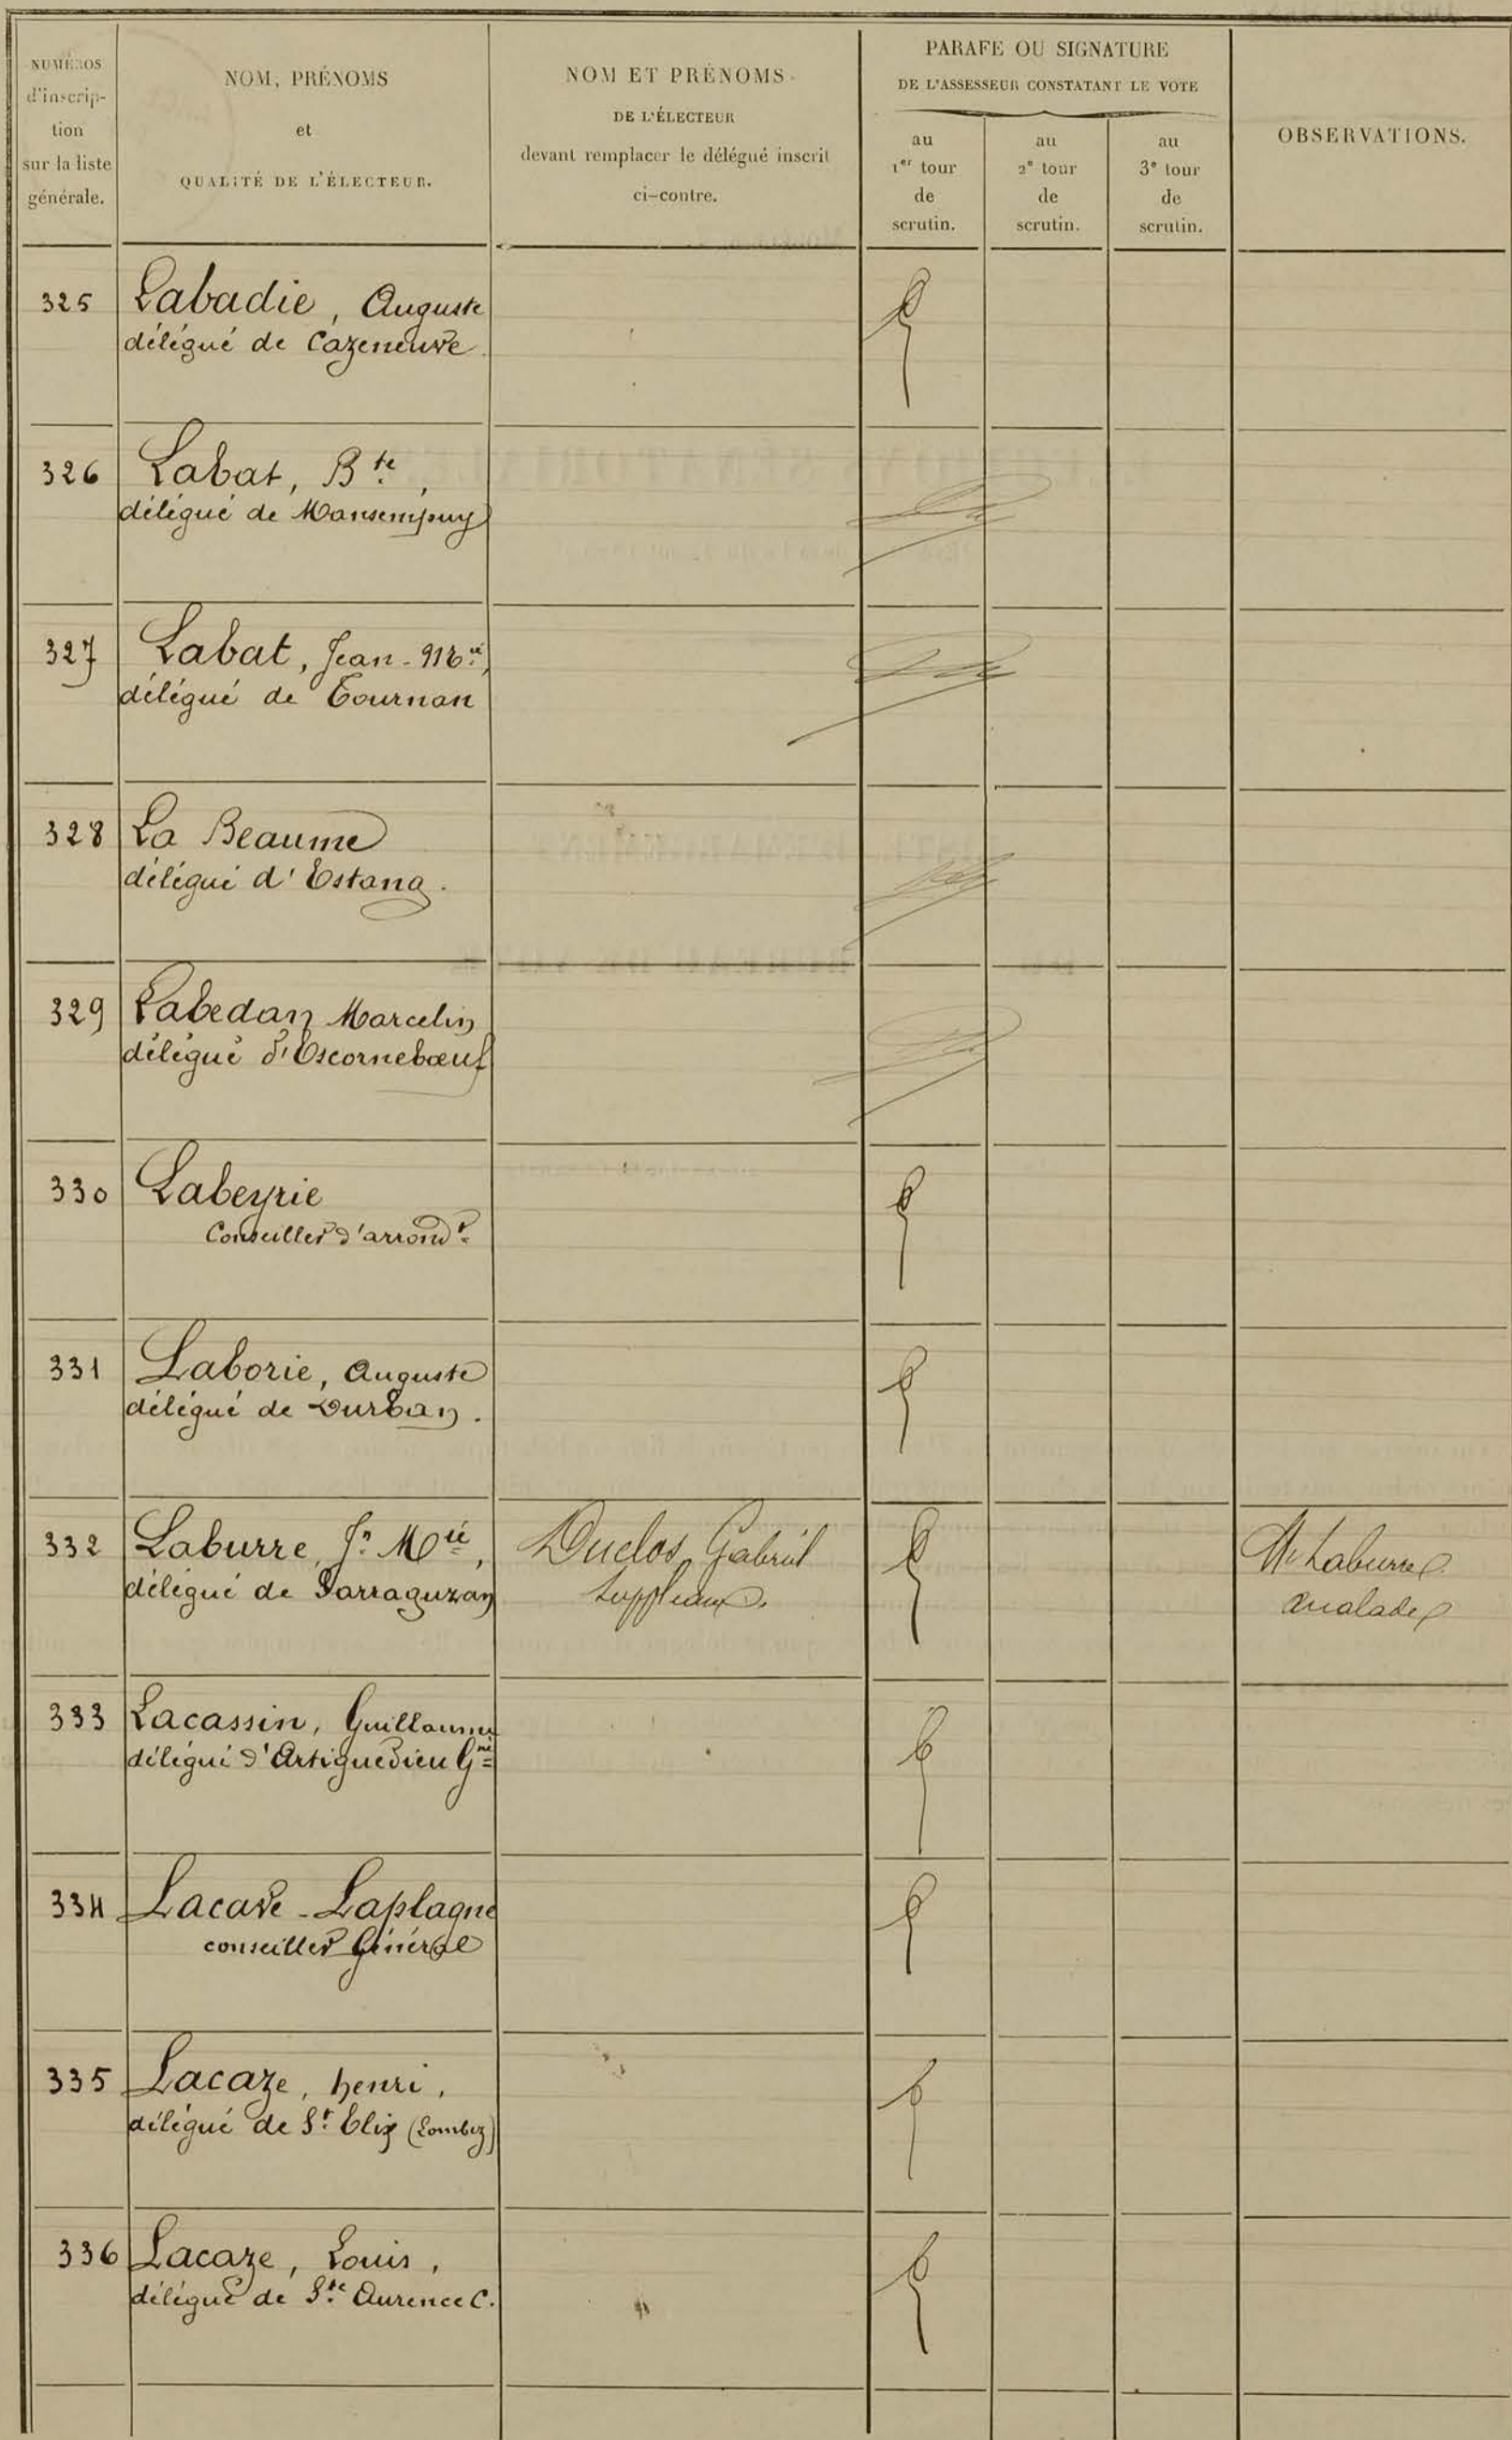 NUMÉROS
d'inscrip-
tion
sur la liste
générale.
NOM, PRÉNOMS
et
QUALITÉ DE L'ÉLECTEUR.
NOM ET PRÉNOMS
DE L'ÉLECTEUR
devant remplacer le délégué inscrit
ci-contre.
PARAFE OU SIGNATURE
DE L'ASSESSEUR CONSTATANT LE VOTE
au
1er tour
de
scrutin.
au
2e tour
de
scrutin.
au
3e tour
de
scrutin.
OBSERVATIONS.
325 Labadie, Auguste
délégué de Cazeneuve
326 Labat, Bte,
délégué de Mansempuy
327 Labat, Jean-Mie,
délégué de Tournan
328 La Beaume
délégué d'Estang.
329 Labedan Marcelin
délégué d'Escorneboeuf
330 Labeyrie
Conseiller d'arrondt
331 Laborie, Auguste
délégué de Durban.
332 Laburre, Jn Mie, Duclos Gabriel M. Laburre
délégué de Sarraguzan suppléant. malade
333 Lacassin, Guillaume
délégué d'Artiguedieu Gné
334 Lacave-Laplagne
conseiller Général
335 Lacaze, henri,
délégué de St Elix (Lombez)
336 Lacaze, Louis,
délégué de Ste Aurence C.